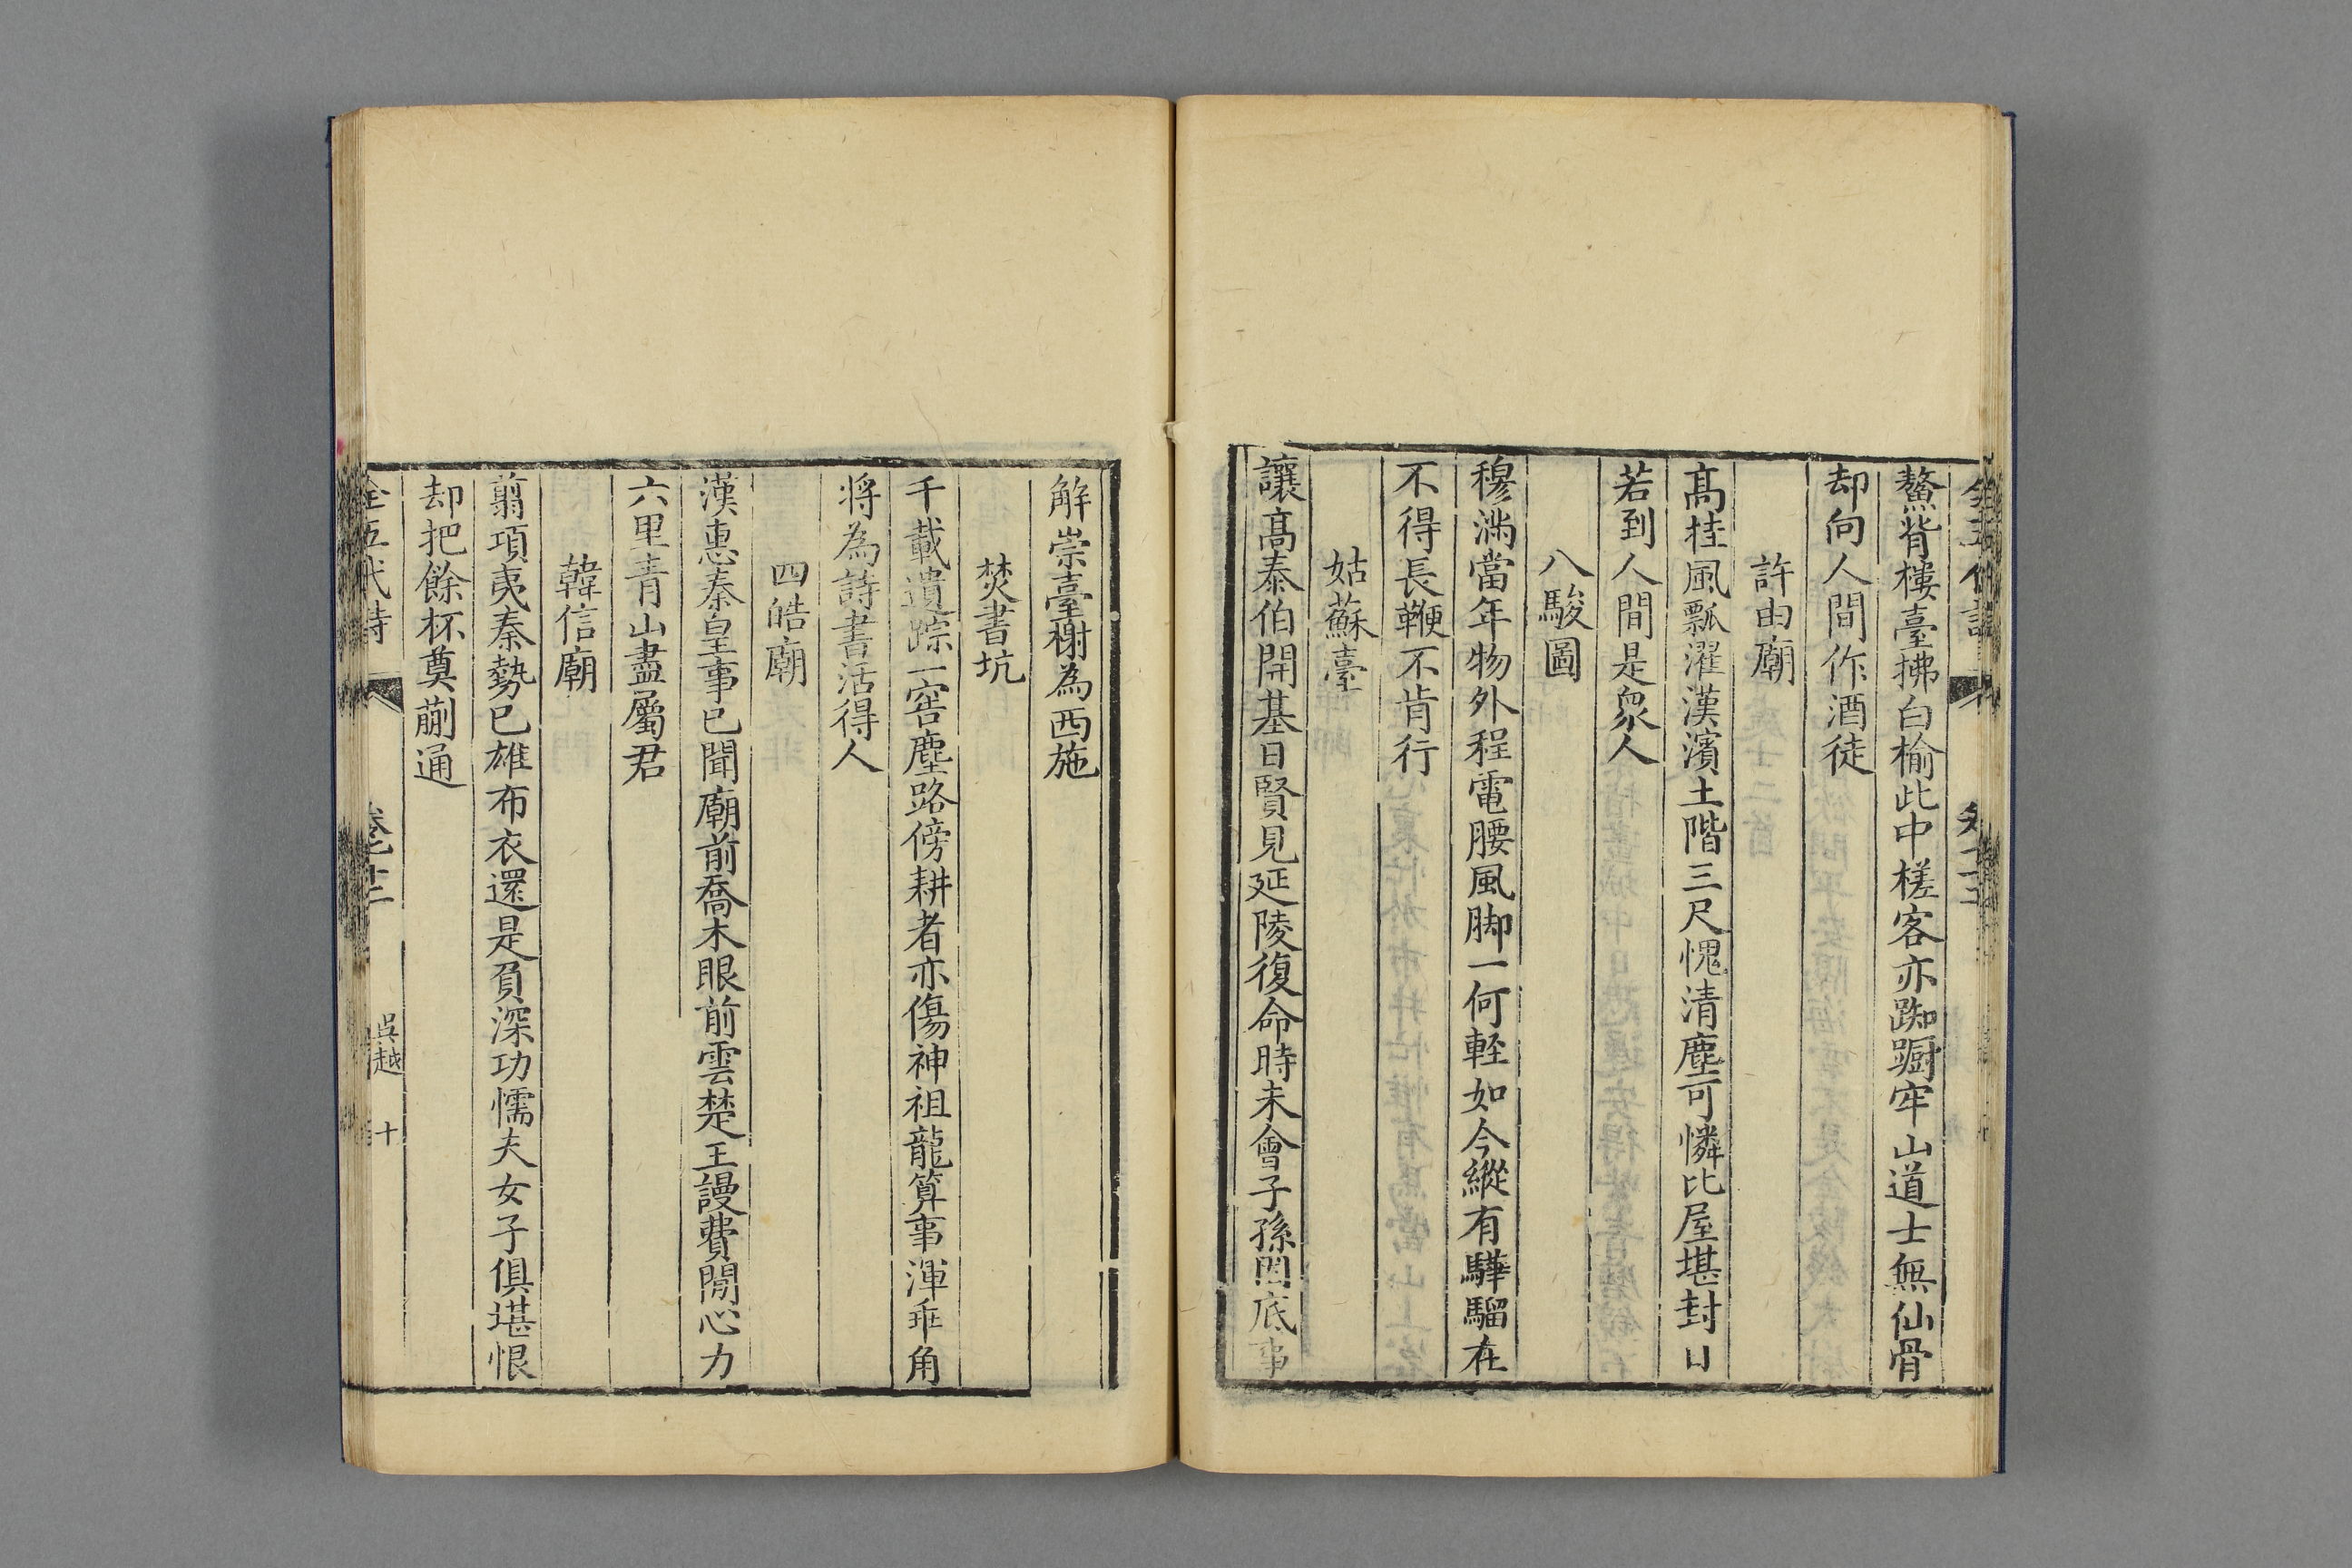 鰲背樓臺拂白榆此中槎客亦踟躕牢山道士無仙骨
却向人間作酒徒
許由廟
髙挂風瓢濯漢濱土階三尺愧清塵可憐比屋堪封日
若到人間是衆人
八駿圖
穆滿當年物外程電腰風脚一何輕如今縱有驊騮在
不得長鞭不肯行
姑蘇臺
讓髙泰伯開基日賢見延陵復命時未會子孫因底事
解崇臺榭為西施
焚書坑
千載遺踪一窖塵路傍耕者亦傷神祖龍算事渾乖角
将為詩書活得人
四皓廟
漢惠秦皇事已聞廟前喬木眼前雲楚王謾費閒心力
六里青山盡屬君
韓信廟
翦項夷秦勢已雄布衣還是負深功懦夫女子俱堪恨
却把餘杯奠蒯通
全五代詩
吳越
十